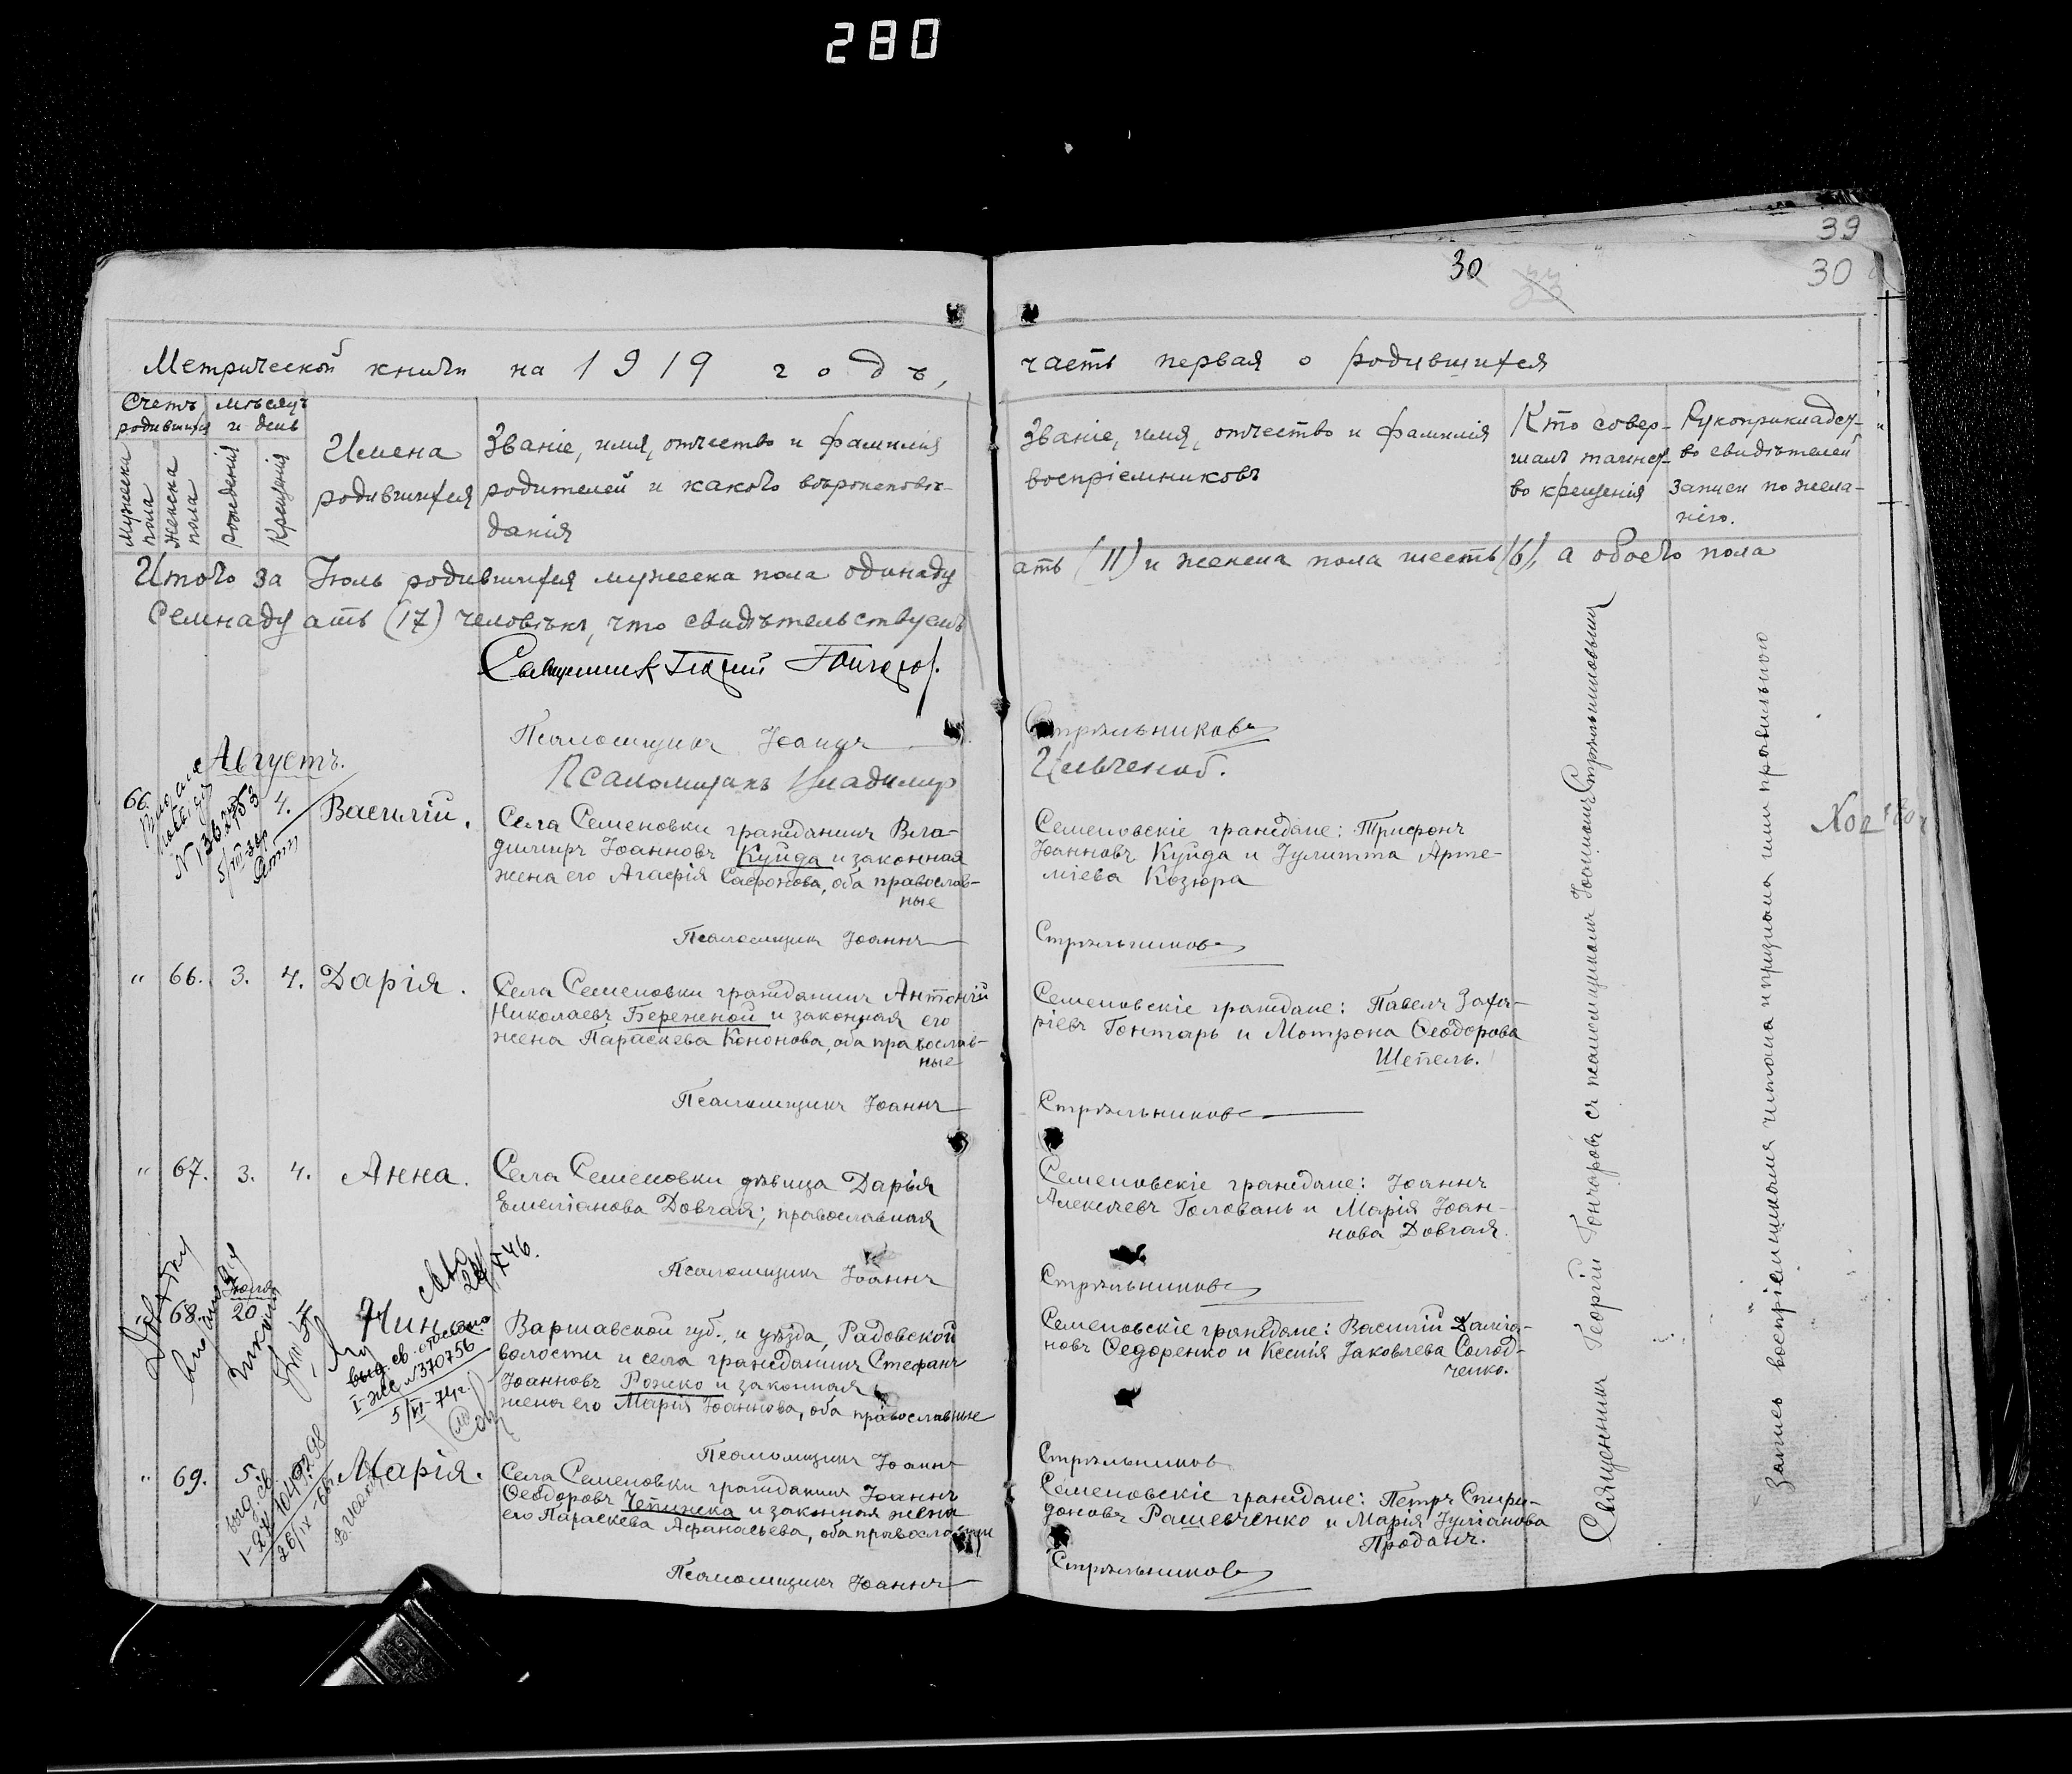 280
39
30
30
33
Метрической книги на 1919 годъ,
часть первая о родившихся
Счетъ родившихся
мѣсяцъ и день
Мужеска пола
Женска пола
Рожденія
Крещенія
Имена
родившихся
Званіе, имя, отчество и фамилія
родителей и какого вѣроисповѣ-
данія
Званіе, имя, отчество и фамилія
воспріемниковъ
Кто совер-
шалъ таинст-
во крещенія
Рукоприкладст-
во свидѣтелей
записи по жела-
нію.
Итого за Іюль родившихся мужеска пола одинадц
ать (11) и женска пола шесть (6), а обоего пола
Семнадцать (17) человѣкъ, что свидѣтельствуемъ
Священник Георгий Гончаров.
Псаломщикъ Іоаннъ Стрѣльниковъ
Псаломщикъ Владимир Ильченко.
Августъ.
66. 4. Василій.
Села Семеновки гражданинъ Вла-
димиръ Іоанновъ Куйда и законная
жена его Агафія Сафонова, оба православ-
ные
Семеновскіе граждане: Трифонъ
Іоанновъ Куйда и Іулитта Арте-
міева Козюра
Псаломщикъ Іоаннъ Стрѣльниковъ
" 66. 3. 4. Дарія.
Села Семеновки гражданинъ Антоній
Николаевъ Береженой и законная его
жена Параскева Кононова, оба православ-
ные
Семеновскіе граждане: Павелъ Заха-
ріевъ Гонтарь и Мотрона Ѳеодорова
Шепель.
Псаломщикъ Іоаннъ Стрѣльниковъ
" 67. 3. 4. Анна.
Села Семеновки дѣвица Дарья
Емеліанова Довгая; православная
Семеновскіе граждане: Іоаннъ
Алексѣевъ Головань и Марія Іоан-
нова Довгая.
Псаломщикъ Іоаннъ Стрѣльниковъ
68. Іюля 20 4
выд. св.
№ 370756
5/VI-74г.
Варшавской губ., и уѣзда, Радовской
волости и села гражданинъ Стефанъ
Іоанновъ Рожко и законная
жена его Марія Іоаннова, оба православные
Семеновскіе граждане: Василій Даміа-
новъ Ѳедоренко и Ксенія Іаковлева Солод-
ченко.
Псаломщикъ Іоаннъ Стрѣльниковъ
" 69. 5. Марія.
выд. св.
26/IX-66
Села Семеновки гражданинъ Іоаннъ
Ѳеодоровъ Чепижка и законная жена
его Параскева Афанасьева, оба православные
Семеновскіе граждане: Петръ Спири-
доновъ Рашевченко и Марія Іуліанова
Проданъ.
Псаломщикъ Іоаннъ Стрѣльниковъ
Священникъ Георгій Гончаровъ съ псаломщикомъ Іоанномъ Стрѣльниковымъ